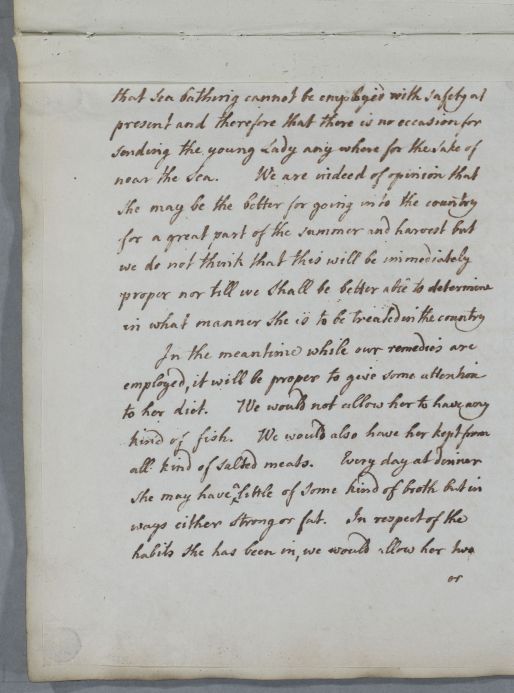 that Sea bathing cannot be employed with safety at
present and therefore that there is no occasion for
sending the young Lady any where for the sake of
near the Sea. We are indeed of opinion that
She may be the better for going into the country
for a great part of the summer and harvest but
we do not think that this will be immediately
proper nor till we shall be better able to determine
in what manner She is to be treated in the country
In the meantime while our remedies are
employed, it will be proper to give some attention
to her diet. We would not allow her to have any
kind of fish. We would also have her kept from
all kind of salted meats. Every day at dinner
She may have a little of some kind of broth but in
ways either strong or fat. In respect of the
habits She has been in, we would allow her two
or